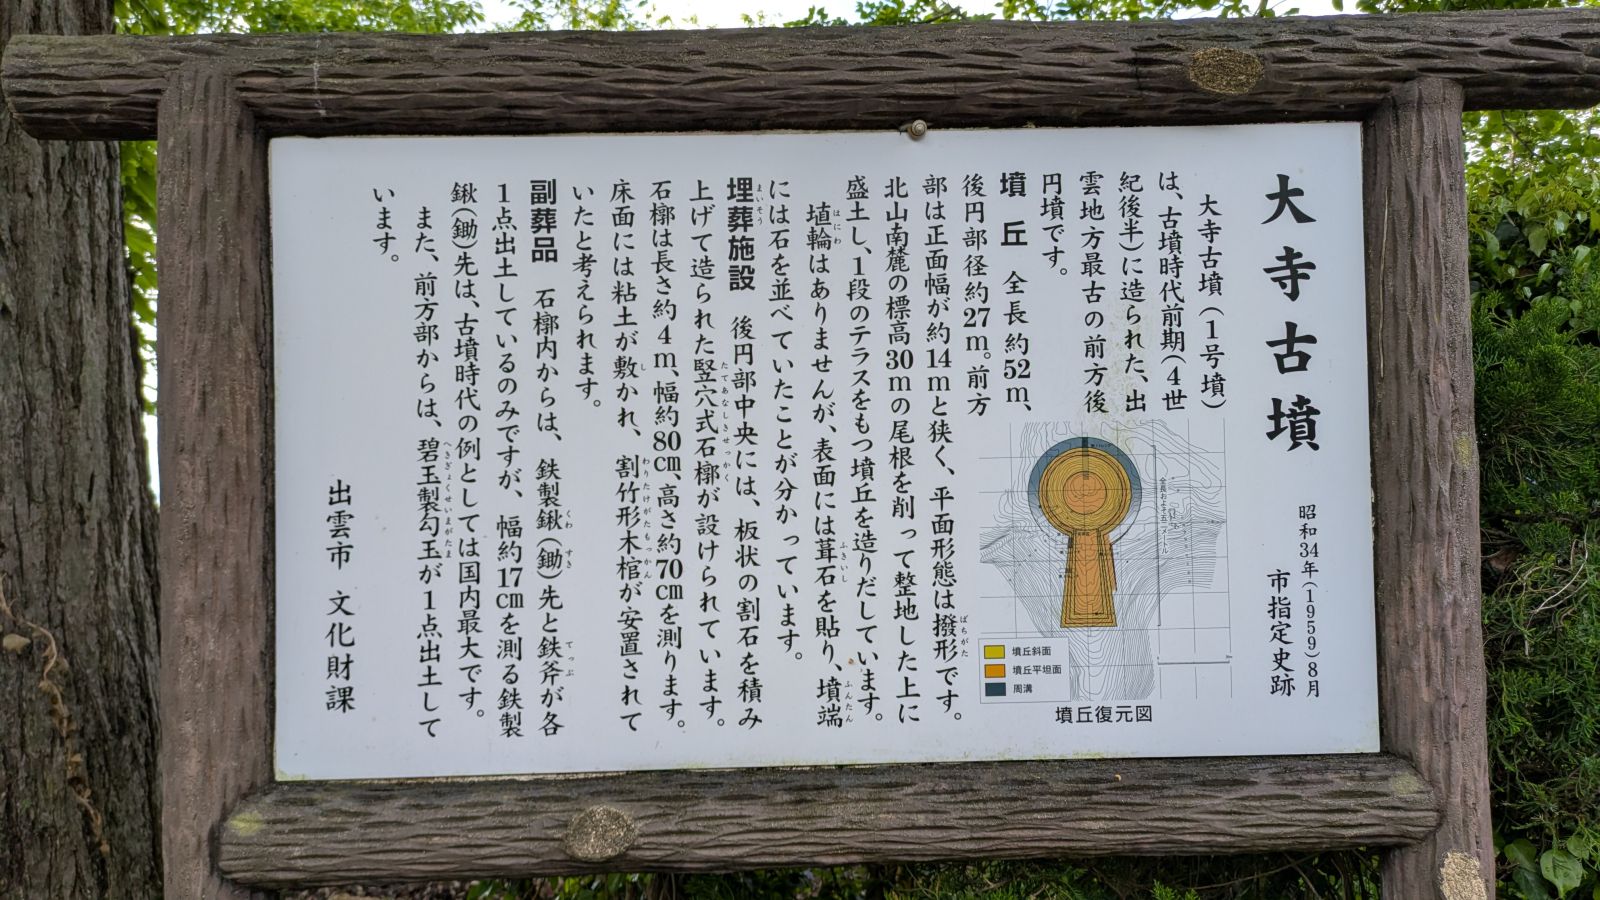 大寺古墳
昭和34年(1959)8月
市指定史跡
大寺古墳(1号墳)
は、古墳時代前期(4世
紀後半)に造られた、出
雲地方最古の前方後
円墳です。
墳丘 全長約52m、
後円部径約27m。前方
部は正面幅が約14mと狭く、平面形態は撥形です。
ばちがた
北山南麓の標高30mの尾根を削って整地した上に
盛土し、1段のテラスをもつ墳丘を造りだしています。
埴輪はありませんが、表面には葺石を貼り、墳端
はにわ
ふきいし
ふんたん
には石を並べていたことが分かっています。
埋葬施設 後円部中央には、板状の割石を積み
まいそう
上げて造られた竪穴式石槨が設けられています。
たてあなしきせっかく
石槨は長さ約4m、幅約80㎝、高さ約70㎝を測ります。
床面には粘土が敷かれ、割竹形木棺が安置されて
し
わりたけがたもっかん
いたと考えられます。
副葬品 石槨内からは、鉄製鍬(鋤)先と鉄斧が各
くわ
すき
てっぷ
1点出土しているのみですが、幅約17㎝を測る鉄製
鍬(鋤)先は、古墳時代の例としては国内最大です。
また、前方部からは、碧玉製勾玉が1点出土して
へきぎょくせいまがたま
います。
出雲市 文化財課
全長およそ五二メートル
墳丘斜面
墳丘平坦面
周溝
墳丘復元図